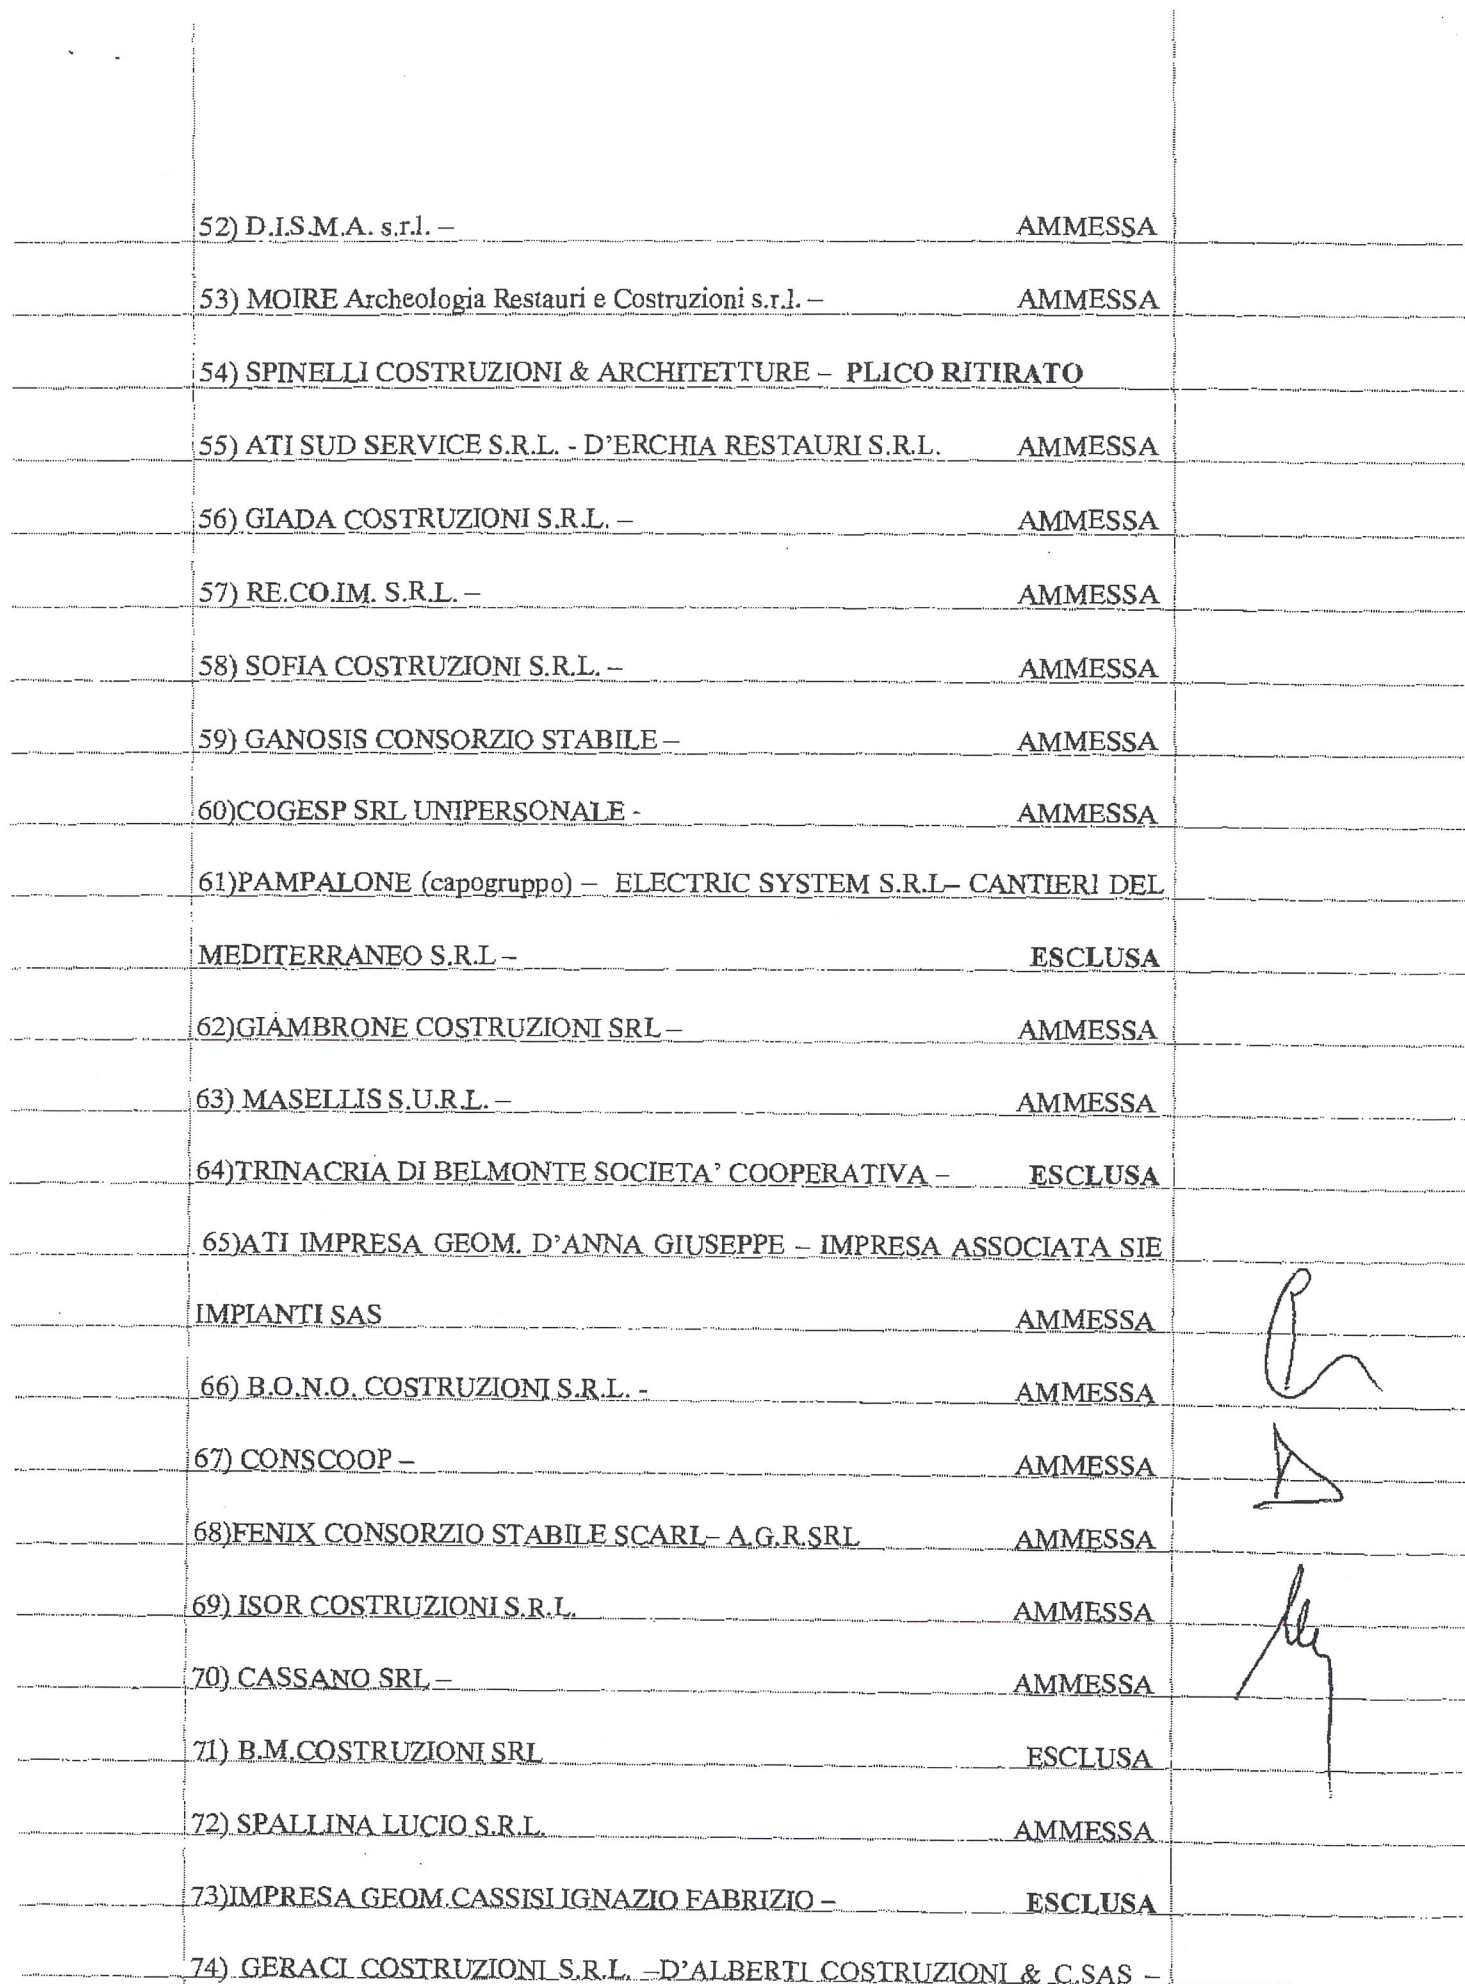 52) D.I.S.M.A. s.r.l. – AMMESSA
53) MOIRE Archeologia Restauri e Costruzioni s.r.l. – AMMESSA
54) SPINELLI COSTRUZIONI & ARCHITETTURE – PLICO RITIRATO
55) ATI SUD SERVICE S.R.L. - D'ERCHIA RESTAURI S.R.L. AMMESSA
56) GIADA COSTRUZIONI S.R.L. – AMMESSA
57) RE.CO.IM. S.R.L. – AMMESSA
58) SOFIA COSTRUZIONI S.R.L. – AMMESSA
59) GANOSIS CONSORZIO STABILE – AMMESSA
60)COGESP SRL UNIPERSONALE - AMMESSA
61)PAMPALONE (capogruppo) – ELECTRIC SYSTEM S.R.L– CANTIERI DEL
MEDITERRANEO S.R.L – ESCLUSA
62)GIAMBRONE COSTRUZIONI SRL – AMMESSA
63) MASELLIS S.U.R.L. – AMMESSA
64)TRINACRIA DI BELMONTE SOCIETA' COOPERATIVA – ESCLUSA
65)ATI IMPRESA GEOM. D'ANNA GIUSEPPE – IMPRESA ASSOCIATA SIE
IMPIANTI SAS AMMESSA
66) B.O.N.O. COSTRUZIONI S.R.L. - AMMESSA
67) CONSCOOP – AMMESSA
68)FENIX CONSORZIO STABILE SCARL– A.G.R.SRL AMMESSA
69) ISOR COSTRUZIONI S.R.L. AMMESSA
70) CASSANO SRL – AMMESSA
71) B.M.COSTRUZIONI SRL ESCLUSA
72) SPALLINA LUCIO S.R.L. AMMESSA
73)IMPRESA GEOM.CASSISI IGNAZIO FABRIZIO – ESCLUSA
74) GERACI COSTRUZIONI S.R.L. –D'ALBERTI COSTRUZIONI & C.SAS –